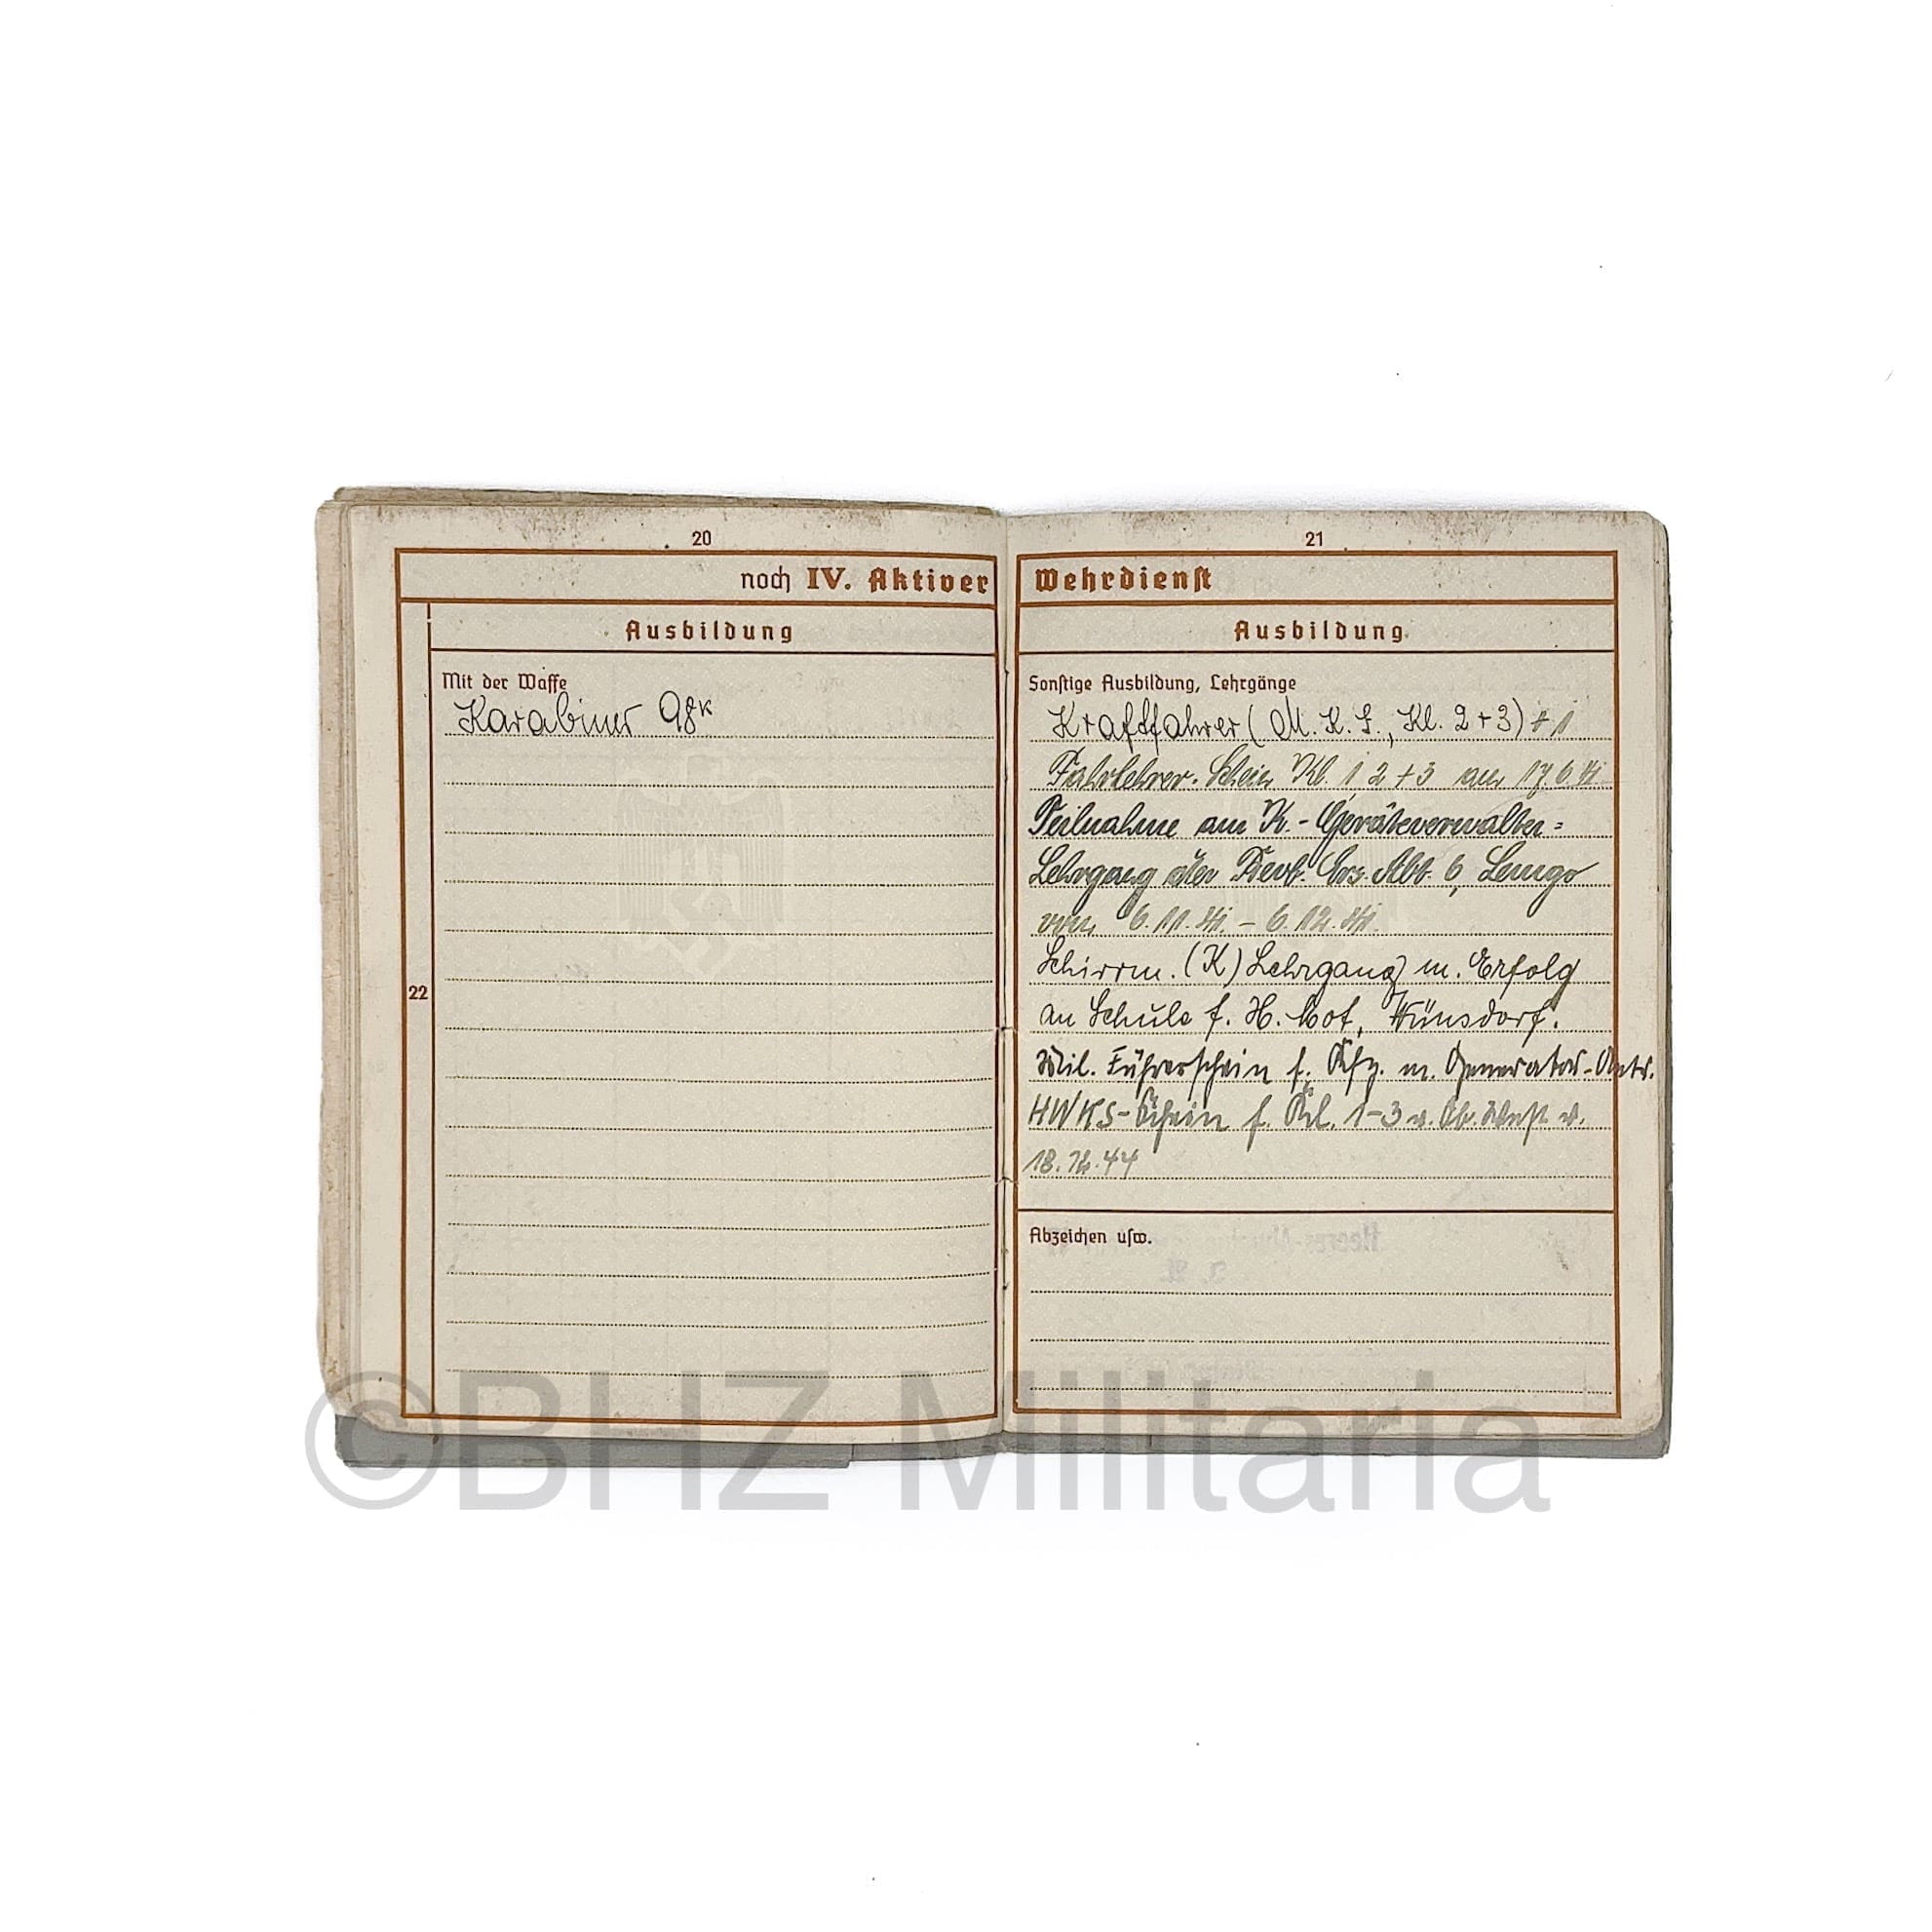 20
noch IV. Aktiver
Ausbildung
22
Mit der Waffe
Karabiner 98k
21
Wehrdienst
Ausbildung
Sonstige Ausbildung, Lehrgänge
Kraftfahrer (M.K.S., Kl. 2+3) + 1
Fahrlehrer-Schein Kl. 1 2 + 3 am 17.6.41.
Teilnahme am K.-Geräteverwalter=
Lehrgang der Ers. Abt. 6, Lemgo
vom 6.11.41. – 6.12.41.
Schirrm. (K) Lehrgang m. Erfolg
an Schule f. H. Mot, Wünsdorf.
Mil. Führerschein f. Kfz. m. Generator-Antr.
HWKS-Schein f. Kl. 1-3 v. Ob. West v.
18.12.44
Abzeichen usw.
©BHZ Militaria